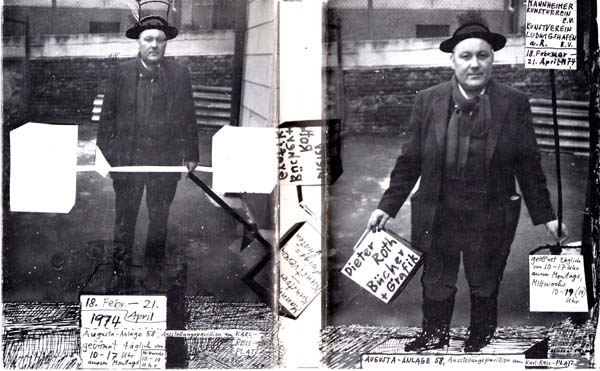 MANNHEIMER
KUNSTVEREIN
E.V.
KUNSTVEREIN
LUDWIGSHAFEN
a.R. E.V.
18. Februar –
21. April 1974
Dieter
Roth
Bücher
+ Grafik
geöffnet täglich
von 10-17 Uhr
ausser Montags,
Mittwochs
10-19
Uhr
AUGUSTA-ANLAGE 58, Ausstellungspavillon am Karl-Reiss-PLATZ
Dieter
Roth
Bücher +
Grafik
18. Febr. – 21.
1974 April
Augusta-Anlage 58, Ausstellungspavillon am KARL-
REISS-
PLATZ
geöffnet täglich von
10-17 Uhr
ausser Montags